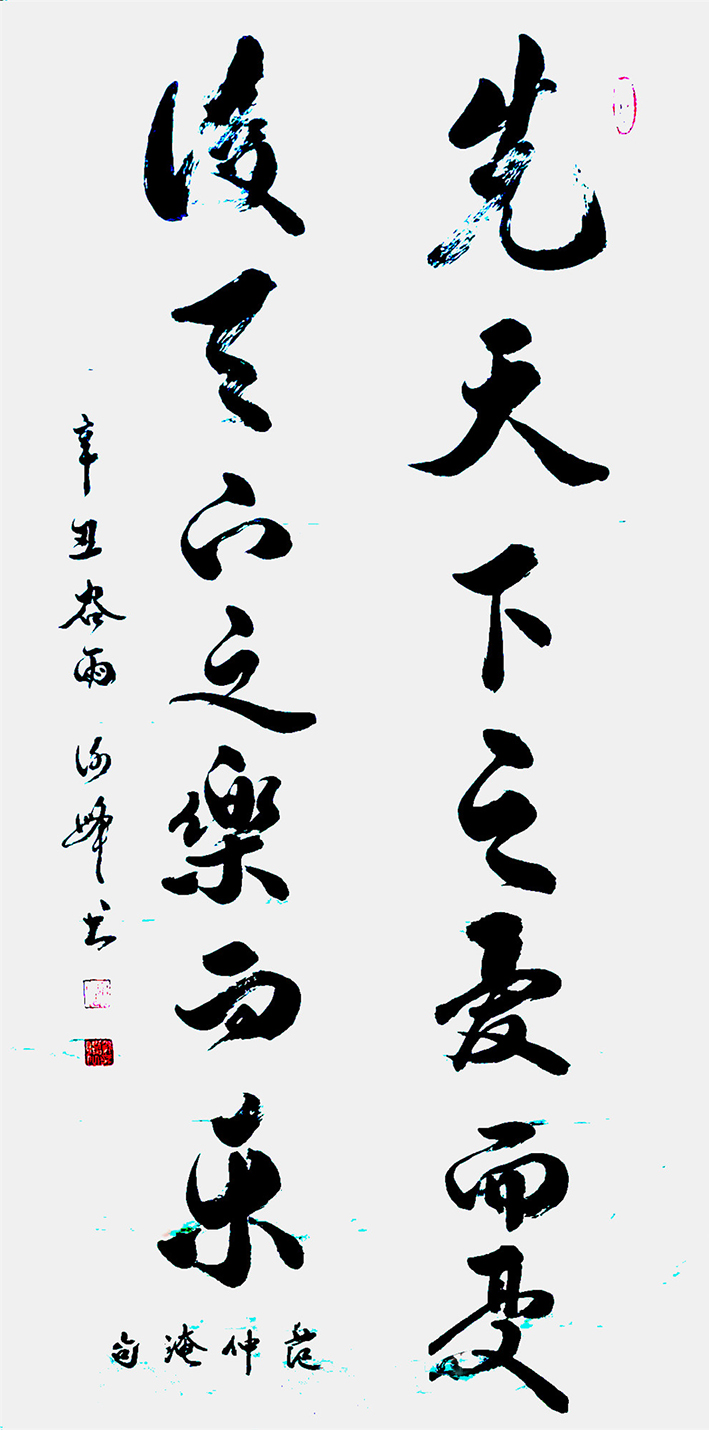 先天下之憂而憂
後天下之樂而乐
范仲淹句
辛丑谷雨 海峰书